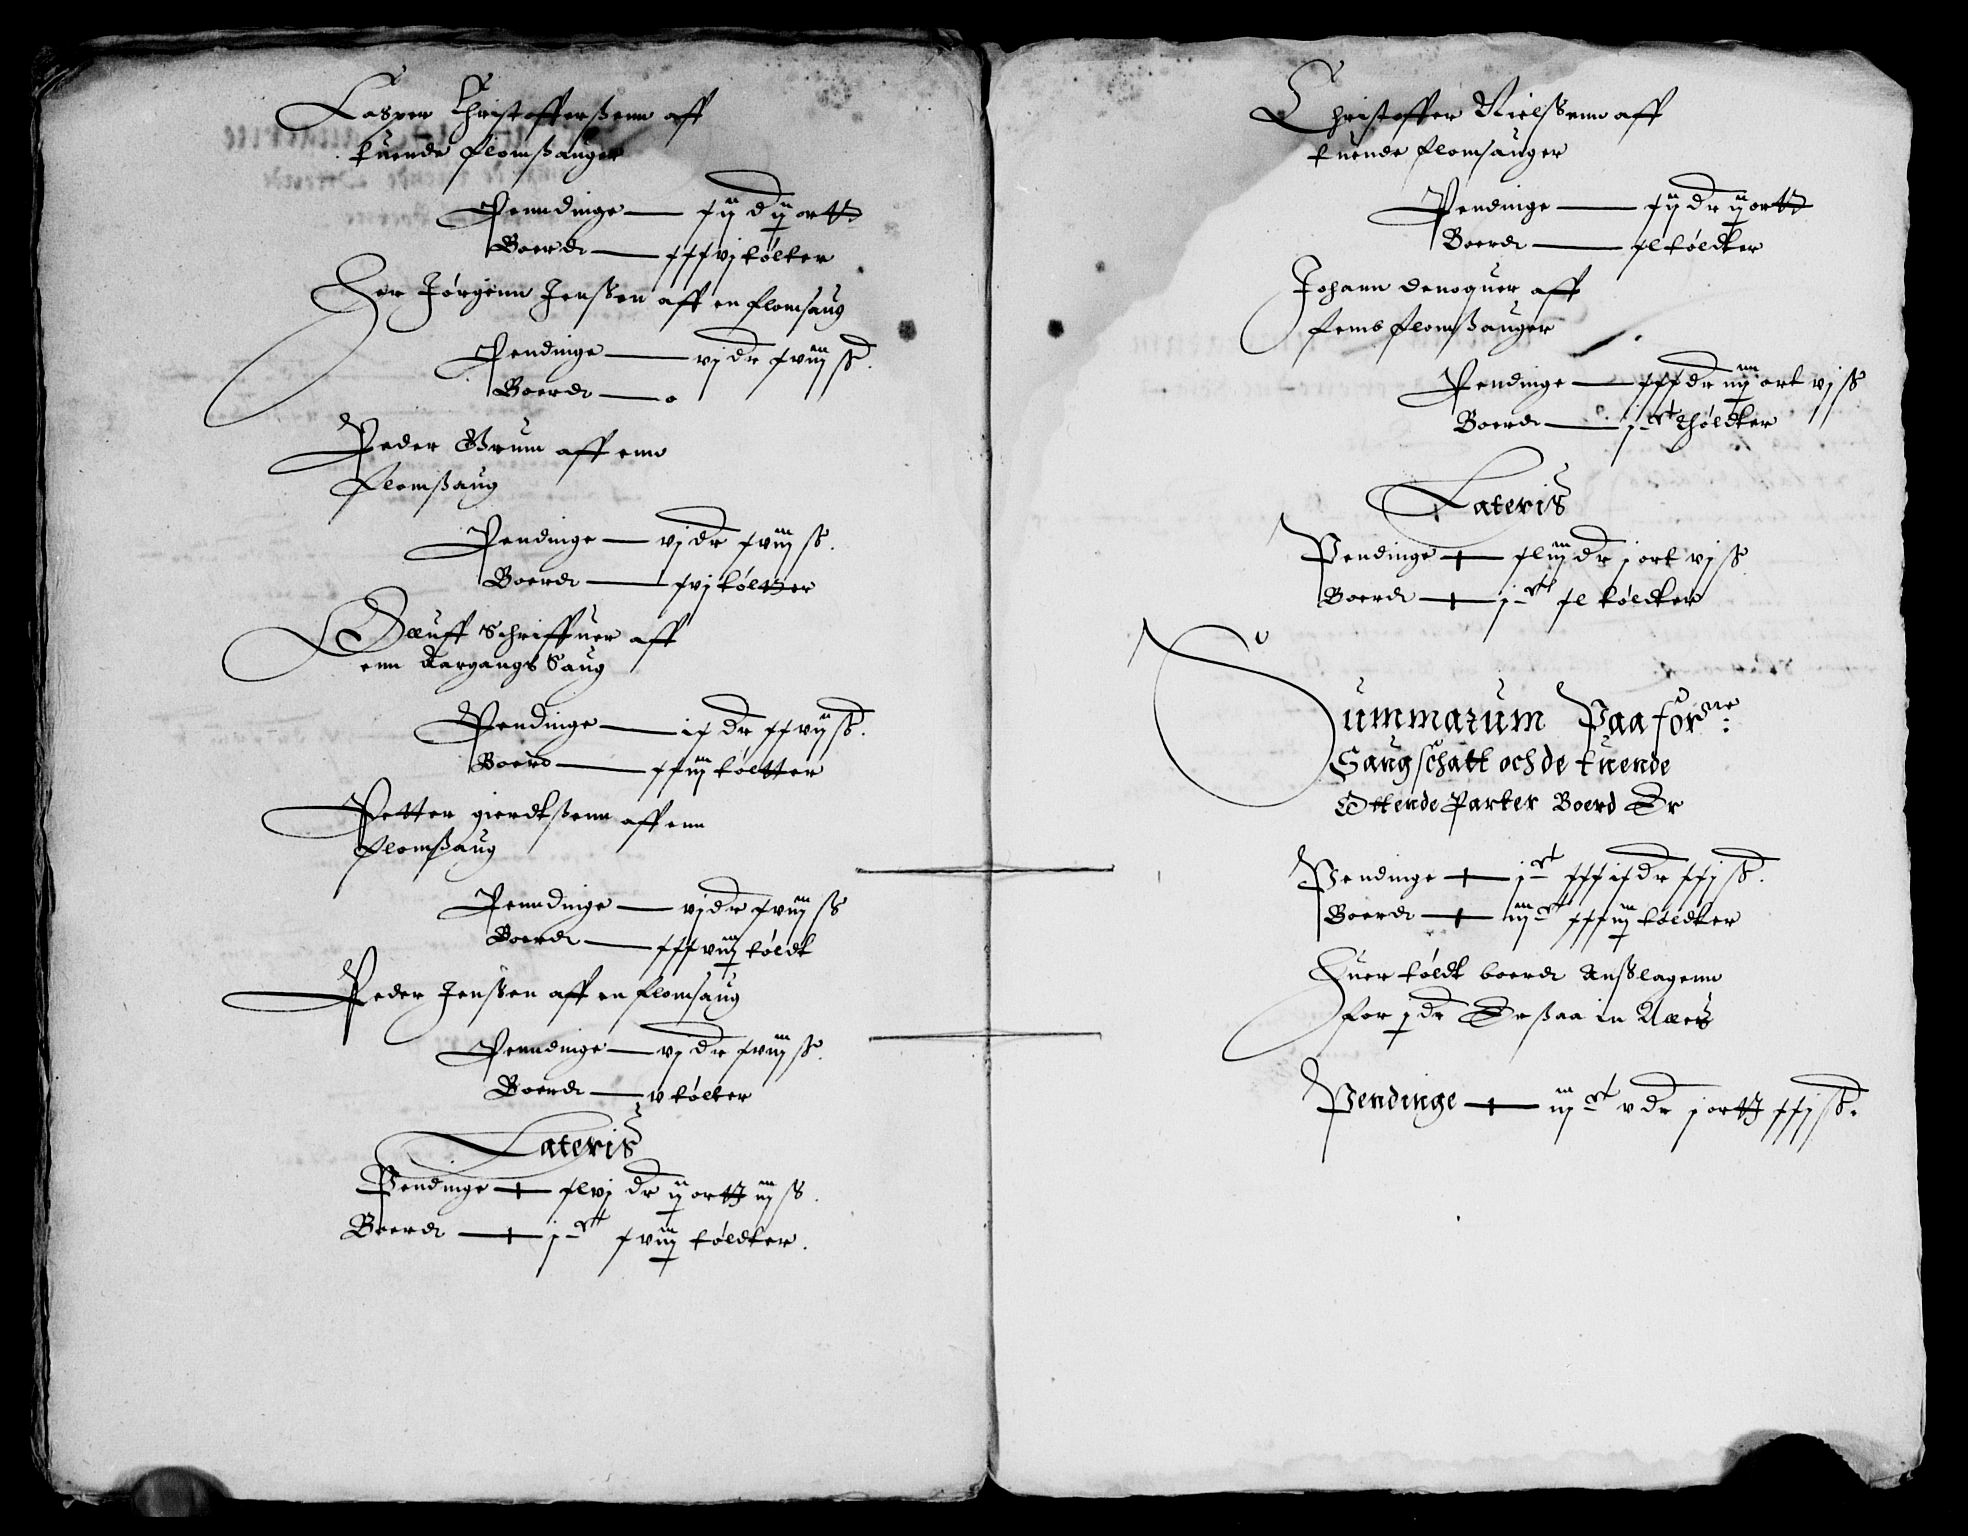 Casper Christofferßenn aff
tuende flomßauger
Penndinge — xij d ij ortt
Boerdt — xxxvj tólter
Her Jórgenn Jenßen aff en flomsaug
Pendinge — vj dr xviij ß.
Boerdt — o
Peder Grum aff enn
flomßaug
Pendinge — vj dr xviij ß.
Boerdt — xvj tóltter
Oluff Schriffuer aff
enn Aargangs Saug
Pendinge — ix dr xxvij ß.
Boerd — xxiij tóltter
Petter gierdtßenn aff enn
flomßaug
Penndinge — vj dr xviij ß
Boerdt — xxxviij tóldt
Peder Jenßen aff en flomsaug
Penndinge — vj dr xviij ß.
Boerdt — v tólter
Lateris
Pendinge — xlvj dr ij ortt iij ß.
Boerdt — j c xviij tóldter.
Christoffer Nielßenn aff
tuende flomsauger
Pendinge — xij dr ij ortt
Boerdt — xl tóldter
Johann denoquer aff
femb flomßauger
Pendinge — xxx dr iij ort vj ß
Boerdt — j c thóldter
Lateris
Pendinge — xliij dr j ort vj ß
Boerdt — j c xl tóldter
Summarum Paa forne:
Saugschatt och de tuende
Ottende Parter Boerd Er
Pendinge — j c xxxix dr xxj ß.
Boerdt — iiij c xxxiij tóldter
Huer tóldt boerdt Anßlagenn
for j dr Er ßaa in Alles
Pendinge — iij c v dr j ortt xxj ß.